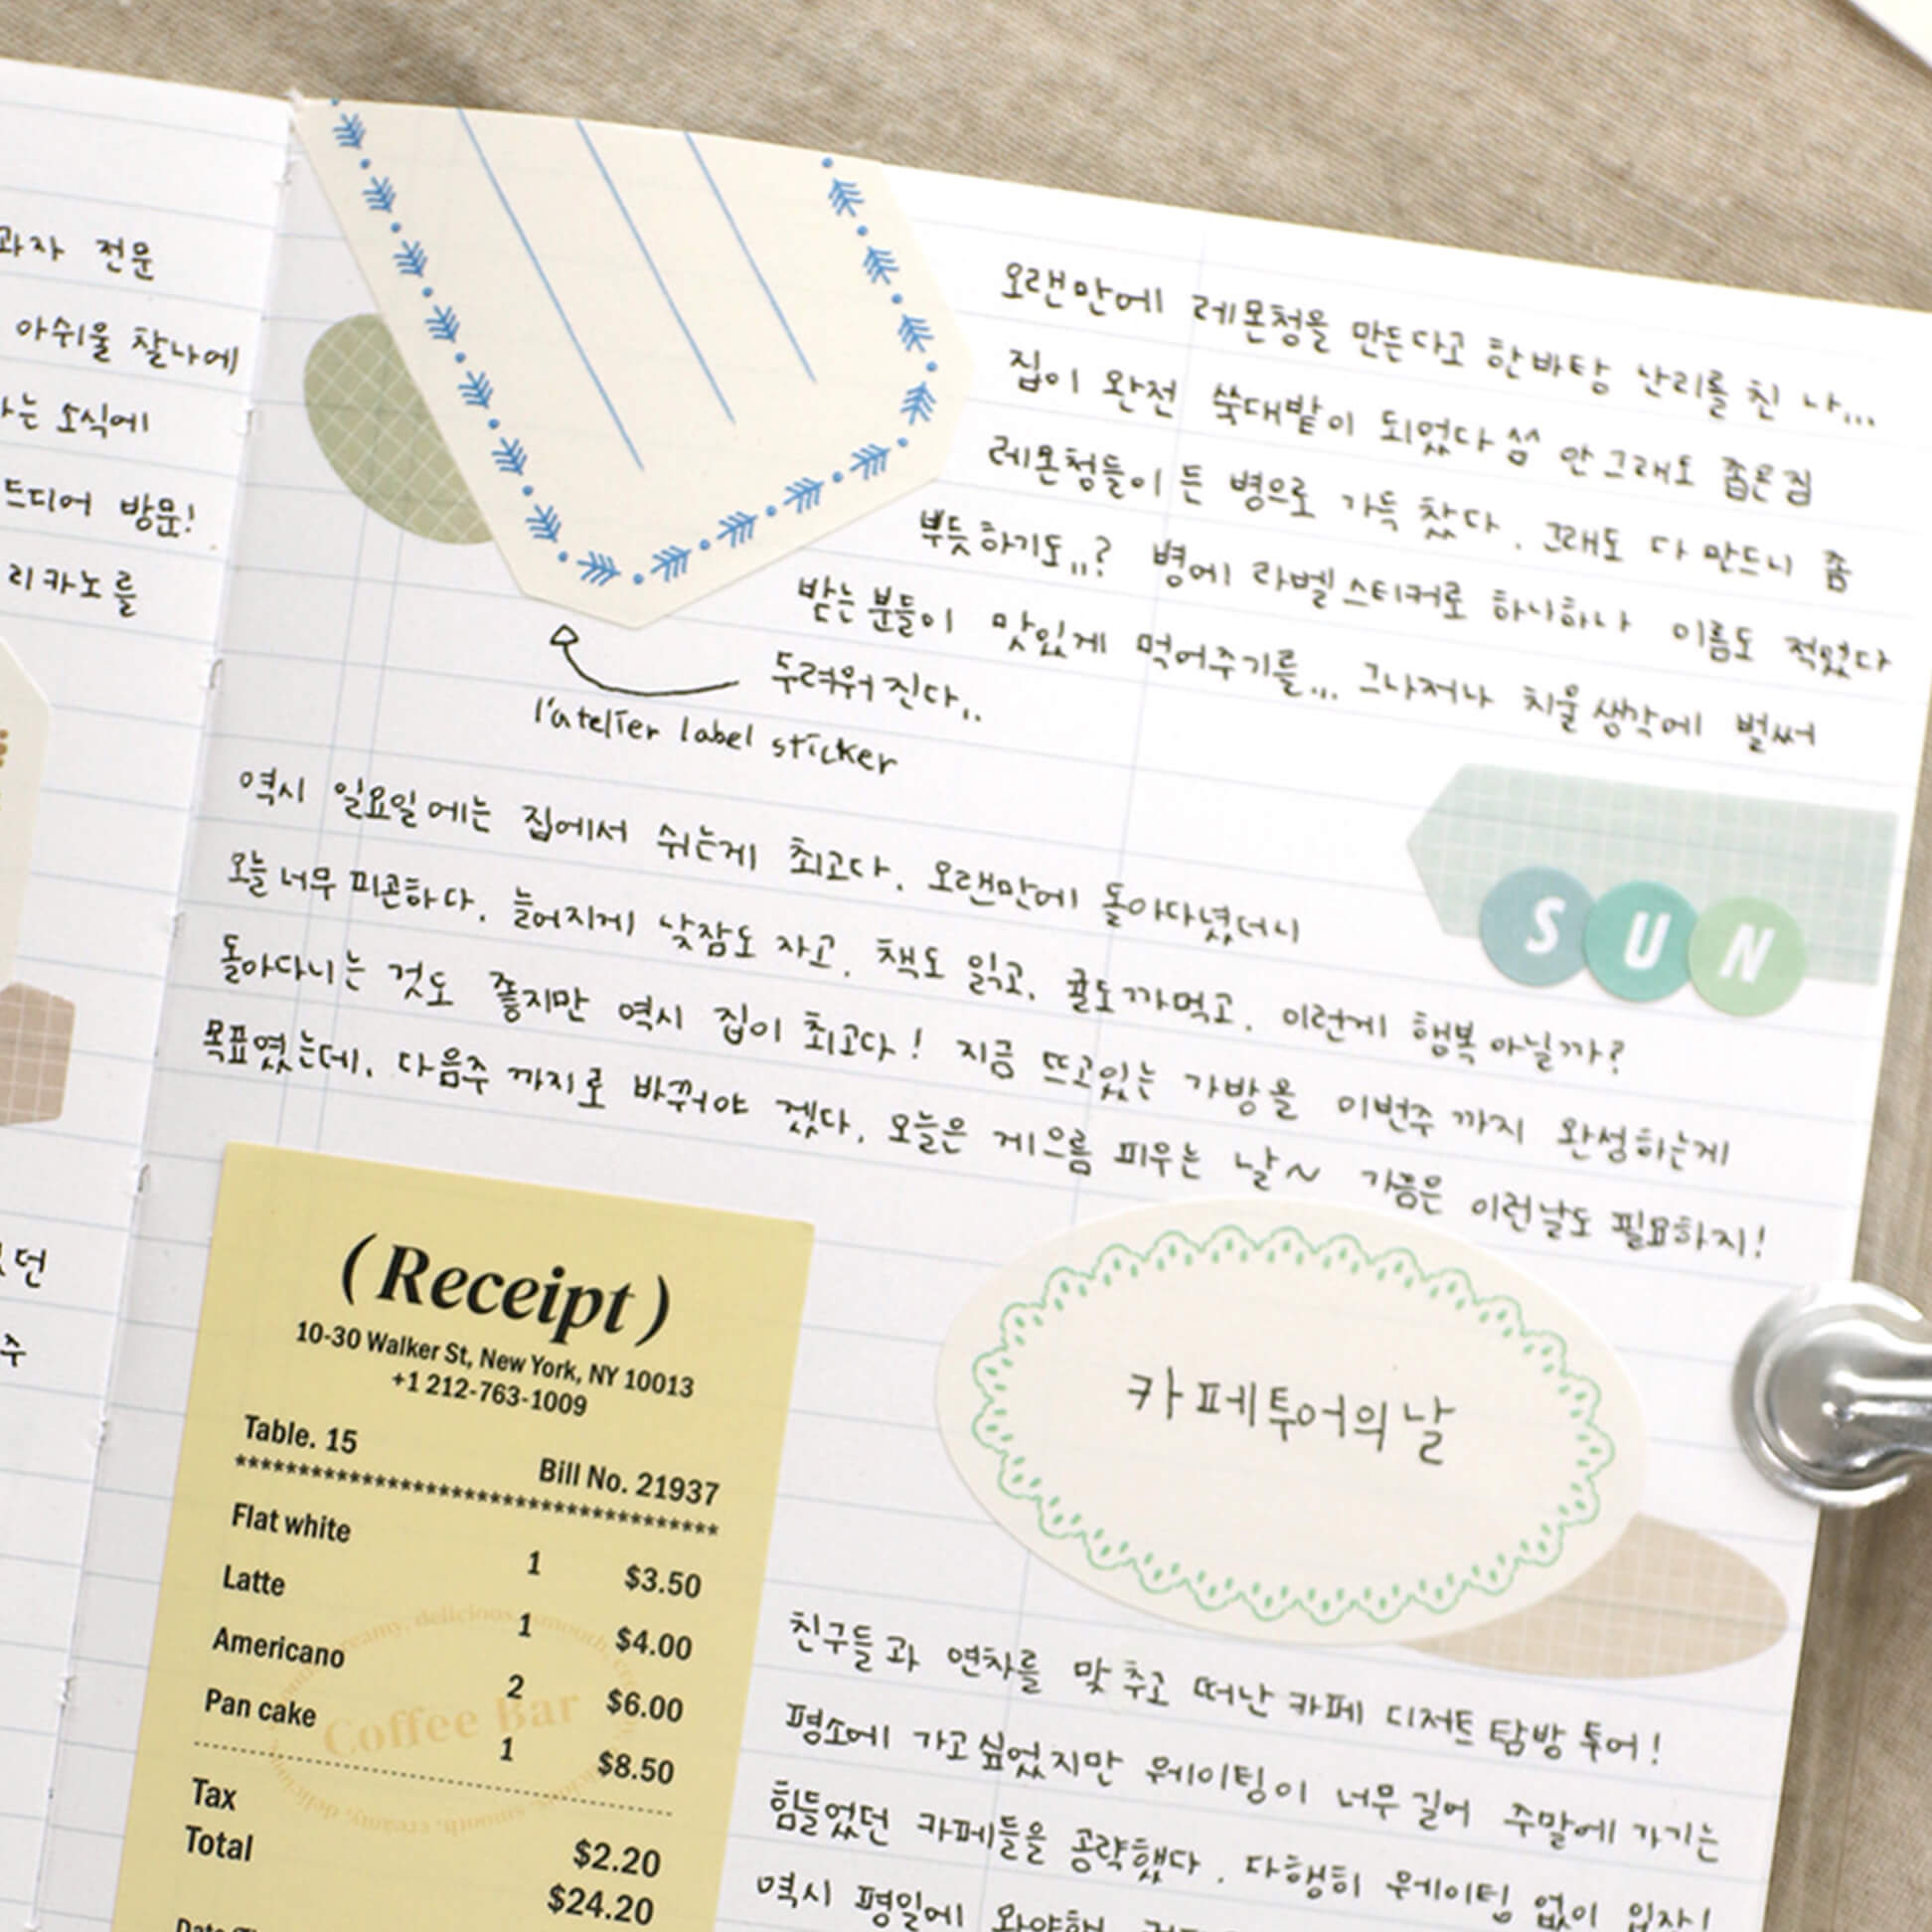 과자 전문
아쉬울 찰나에
는 소식에
드디어 방문!
리카노를
던
주
오랜만에 레몬청을 만든다고 한바탕 난리를 친 나...
집이 완전 쑥대밭이 되었다 안그래도 좁은집
레몬청들이 든 병으로 가득 찼다. 그래도 다 만드니 좀
뿌듯하기도..? 병에 라벨스티커로 하나하나 이름도 적었다
받는분들이 맛있게 먹어주기를... 그나저나 치울생각에 벌써
두려워진다..
l'atelier label sticker
SUN
역시 일요일에는 집에서 쉬는게 최고다. 오랜만에 돌아다녔더니
오늘 너무 피곤하다. 늘어지게 낮잠도 자고. 책도 읽고. 귤도까먹고. 이런게 행복아닐까?
돌아다니는 것도 좋지만 역시 집이 최고다! 지금 뜨고있는 가방을 이번주까지 완성하는게
목표였는데, 다음주 까지로 바꿔야 겠다. 오늘은 게으름 피우는 날~ 가끔은 이런날도 필요하지!
(Receipt)
10-30 Walker St, New York, NY 10013
+1 212-763-1009
Table. 15 Bill No. 21937
****************************************
Flat white 1 $3.50
Latte 1 $4.00
Americano 2 $6.00
Pan cake 1 $8.50
Coffee Bar
Tax $2.20
Total $24.20
카페투어의날
친구들과 연차를 맞추고 떠난 카페 디저트 탐방 투어!
평소에 가고싶었지만 웨이팅이 너무길어 주말에 가기는
힘들었던 카페들을 공략했다. 다행히 웨이팅 없이 입장!
역시 평일에